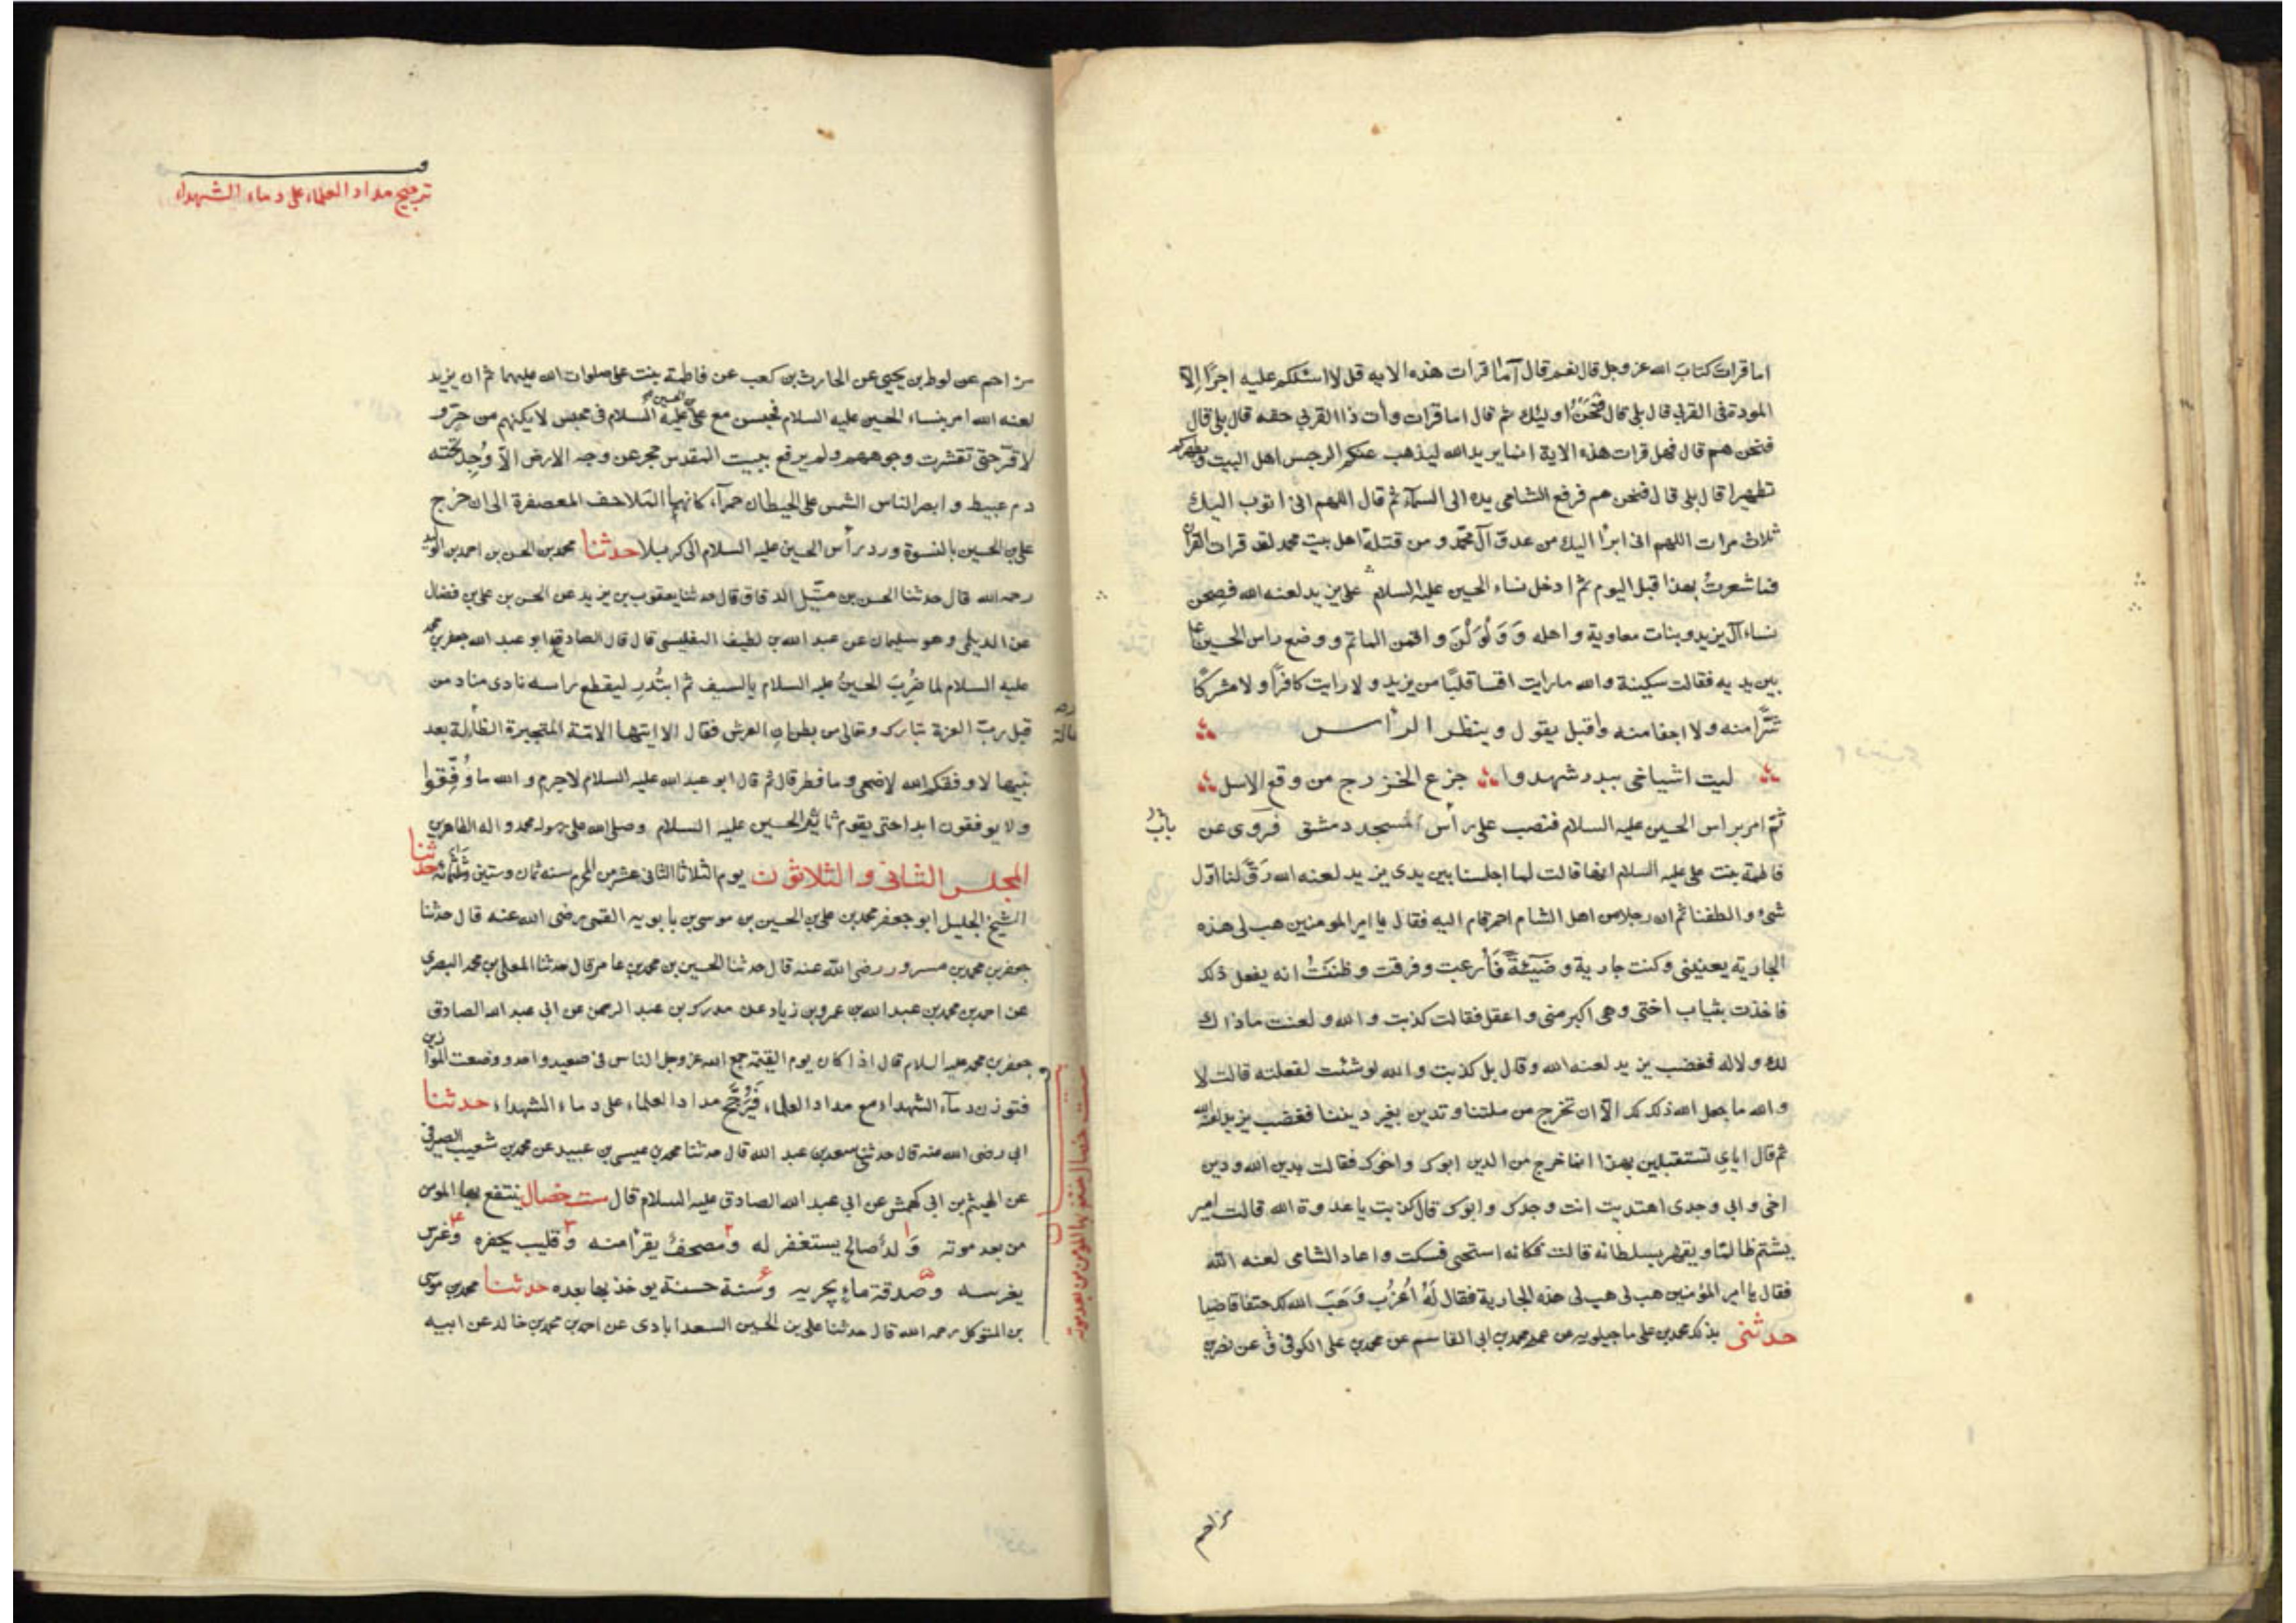 اما قرات كتاب الله عز وجل قال نعم قال أما قرات هذه الايه قل لا اسئلكم عليه اجرًا إلا
المودة فى القربى قال بلى قال فنحن اولئك ثم قال اما قرات وأت ذا القربى حقه قال بلى قال
فنحن هم قال فهل قرات هذه الاية انما يريد الله ليذهب عنكم الرجس اهل البيت ويطهركم
تطهيرا قال بلى قال فنحن هم فرفع الشامى يده الى السماء ثم قال اللهم انى اتوب اليك
ثلاث مرات اللهم انى ابرأ اليك من عدو آل محمد ومن قتلة اهل بيت محمد لقد قرات القرآن
فما شعرت بهذا قبل اليوم ثم ادخل نساء الحسين عليه السلام على يزيد لعنه الله فصحن
نساء آل يزيد وبنات معاوية واهله وولولن واقمن الماتم ووضع راس الحسين
بين يديه فقالت سكينة والله ما رايت اقسا قلبًا من يزيد ولا رايت كافرًا ولا مشركًا
شرًّا منه ولا اجفا منه واقبل يقول وينظر الى الرأس
ليت اشياخى ببدر شهدوا جزع الخزرج من وقع الاسل
ثم امر براس الحسين عليه السلام فنصب على باب مسجد دمشق فروى عن
باب
فاطمة بنت على عليه السلام انها قالت لما اجلسنا بين يدى يزيد لعنه الله رَقَّ لنا اول
شئ والطفنا ثم ان رجلا من اهل الشام احمر قام اليه فقال يا امير المومنين هب لى هذه
الجارية يعنينى وكنت جارية وضيئةً فأرعبت وفرقت وظننتُ انه يفعل ذلك
فاخذت بثياب اختى وهى اكبر منى واعقل فقالت كذبت والله ولعنت ما ذاك
لك ولا له فغضب يزيد لعنه الله وقال بل كذبت والله لو شئت لفعلته قالت لا
والله ما جعل الله ذلك لك الا ان تخرج من ملتنا وتدين بغير ديننا فغضب يزيد لعنه الله
ثم قال اياى تستقبلين بهذا انما خرج من الدين ابوك واخوك فقالت بدين الله ودين
اخى وابى وجدى اهتديت انت وجدك وابوك قال كذبت يا عدوة الله قالت امير
يشتم ظالما ويقهر بسلطانه قالت فكانه استحى فسكت واعاد الشامى لعنه الله
فقال يا امير المؤمنين هب لى هب لى هذه الجارية فقال لَهُ اعزب وَهَبَ الله لك حتفا قاضيا
حدثنى بذلك محمد بن على ماجيلويه عن عمه محمد بن ابى القاسم عن محمد بن على الكوفى عن نصر بن
مزاحم
ترجيح مداد العلماء على دماء الشهداء
مزاحم عن لوط بن يحيى عن الحارث بن كعب عن فاطمة بنت على صلوات الله عليهما ثم ان يزيد
لعنه الله امر بنساء الحسين عليه السلام فحبسن مع على بن الحسين عليه السلام فى محبس لا يكنهم من حرّ و
لا قرّ حتى تقشرت وجوههم ولم يرفع ببيت المقدس حجر عن وجه الارض الّا وُجِد تحته
دم عبيط وابصر الناس الشمس على الحيطان حمرآء كانها الملاحف المعصفرة الى ان خرج
على بن الحسين بالنسوة ورد رأس الحسين عليه السلام الى كربلا حدثنا محمد بن الحسن بن احمد بن الوليد
رحمه الله قال حدثنا الحسن بن متّيل الدقاق قال حدثنا يعقوب بن يزيد عن الحسن بن على بن فضال
عن الديلمى وهو سليمان عن عبد الله بن لطيف التفليسى قال قال الصادق ابو عبد الله جعفر بن محمد
عليه السلام لما ضُرِبَ الحسينُ عليه السلام بالسيف ثم ابتُدِر ليقطع راسه نادى مناد من
قبل ربّ العزة تبارك وتعالى من بطنان العرش فقال الا ايتها الامّة المتجبرة الظالمة بعد
نبيها لا وفقكم الله لاضحى وما فطر قال ثم قال ابو عبد الله عليه السلام لا جرم والله ما وُفِّقوا
ولا يوفقون ابدا حتى يقوم ثائر الحسين عليه السلام وصلى الله على رسوله محمد واله الطاهرين
المجلس الثانى والثلاثون يوم الثلاثا الثانى عشر من المحرم سنه ثمان وستين وثلثمائه حدثنا
الشيخ الجليل ابو جعفر محمد بن على بن الحسين بن موسى بن بابويه القمى رضى الله عنه قال حدثنا
جعفر بن محمد بن مسرور رضى الله عنه قال حدثنا الحسين بن محمد بن عامر قال حدثنا المعلى بن محمد البصرى
عن احمد بن محمد بن عبد الله بن عمرو بن زياد عن مدرك بن عبد الرحمن عن ابى عبد الله الصادق
جعفر بن محمد عليه السلام قال اذا كان يوم القيمة جمع الله عز وجل الناس فى صعيد واحد ووضعت الموازين
فتوزن دمآء الشهداء مع مداد العلماء فَيُرَجَّح مداد العلماء على دماء الشهداء حدثنا
ابى رضى الله عنه قال حدثنا سعد بن عبد الله قال حدثنا محمد بن عيسى بن عبيد عن محمد بن شعيب الصيرفى
عن الهيثم بن ابى كهمش عن ابى عبد الله الصادق عليه السلام قال ست خصال ينتفع بها المومن
من بعد موته ولد صالح يستغفر له ومصحف يقرأ منه وقليب يحفره وغرس
يغرسه وصدقة ماء يجريه وسُنة حسنة يوخذ بها بعده حدثنا محمد بن موسى
بن المتوكل رحمه الله قال حدثنا على بن الحسين السعدابادى عن احمد بن محمد بن خالد عن ابيه
ست خصال ينتفع بها المومن من بعد موته